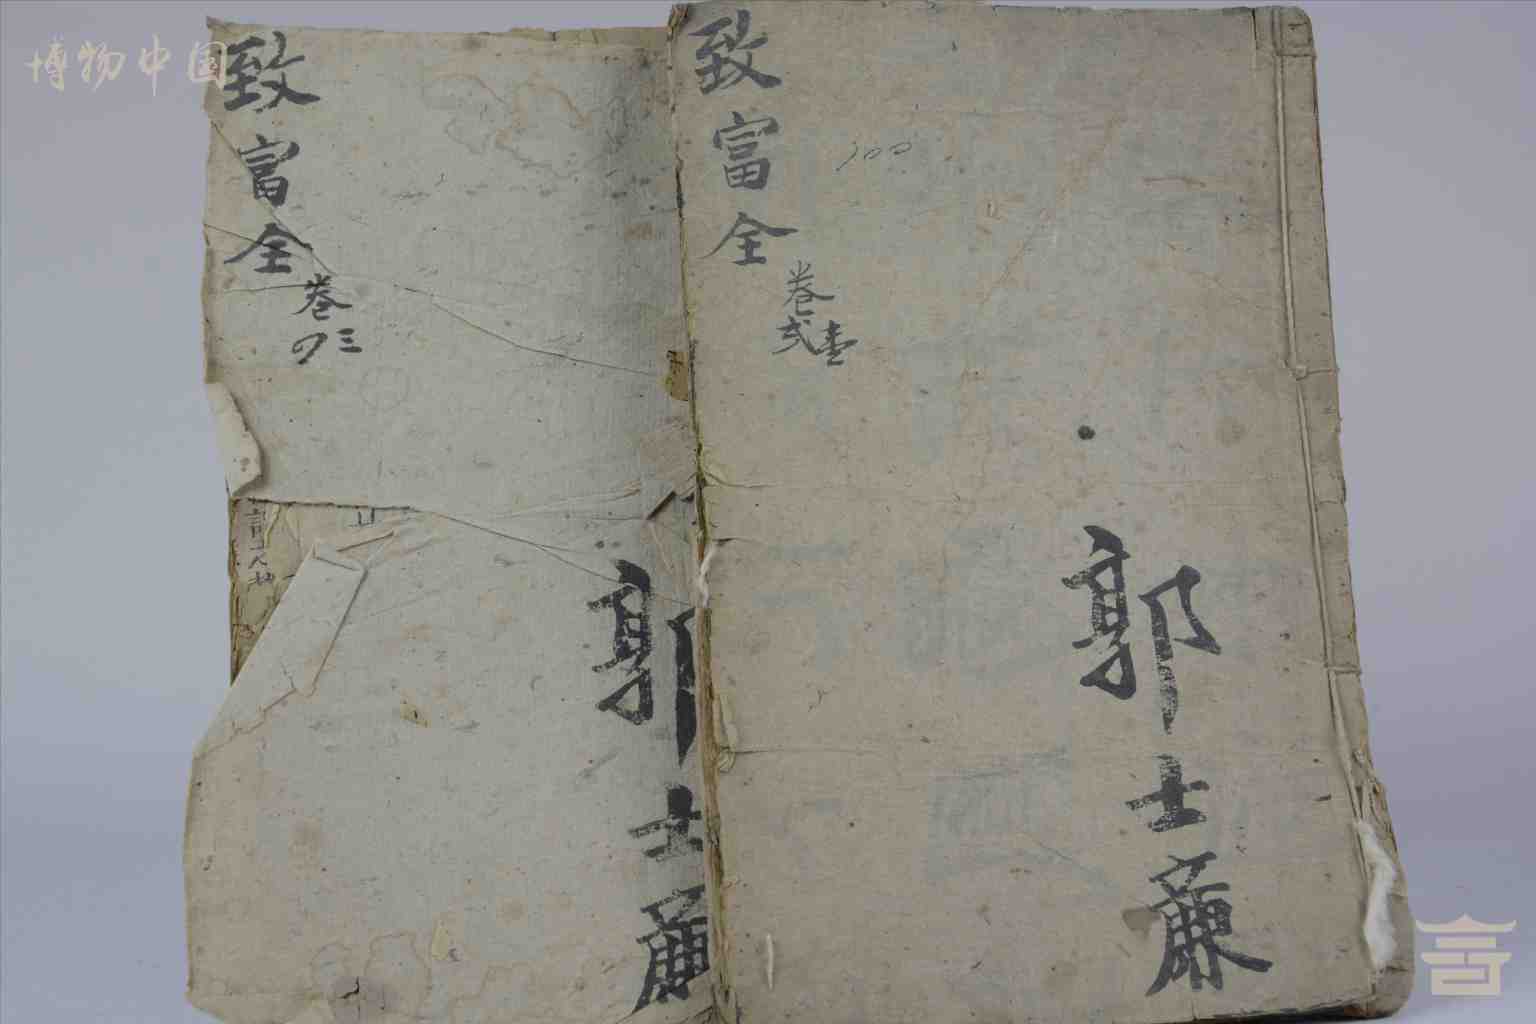 博物中国
致富全
卷壹
弍
郭士廉
致富全
卷三
四
郭士廉